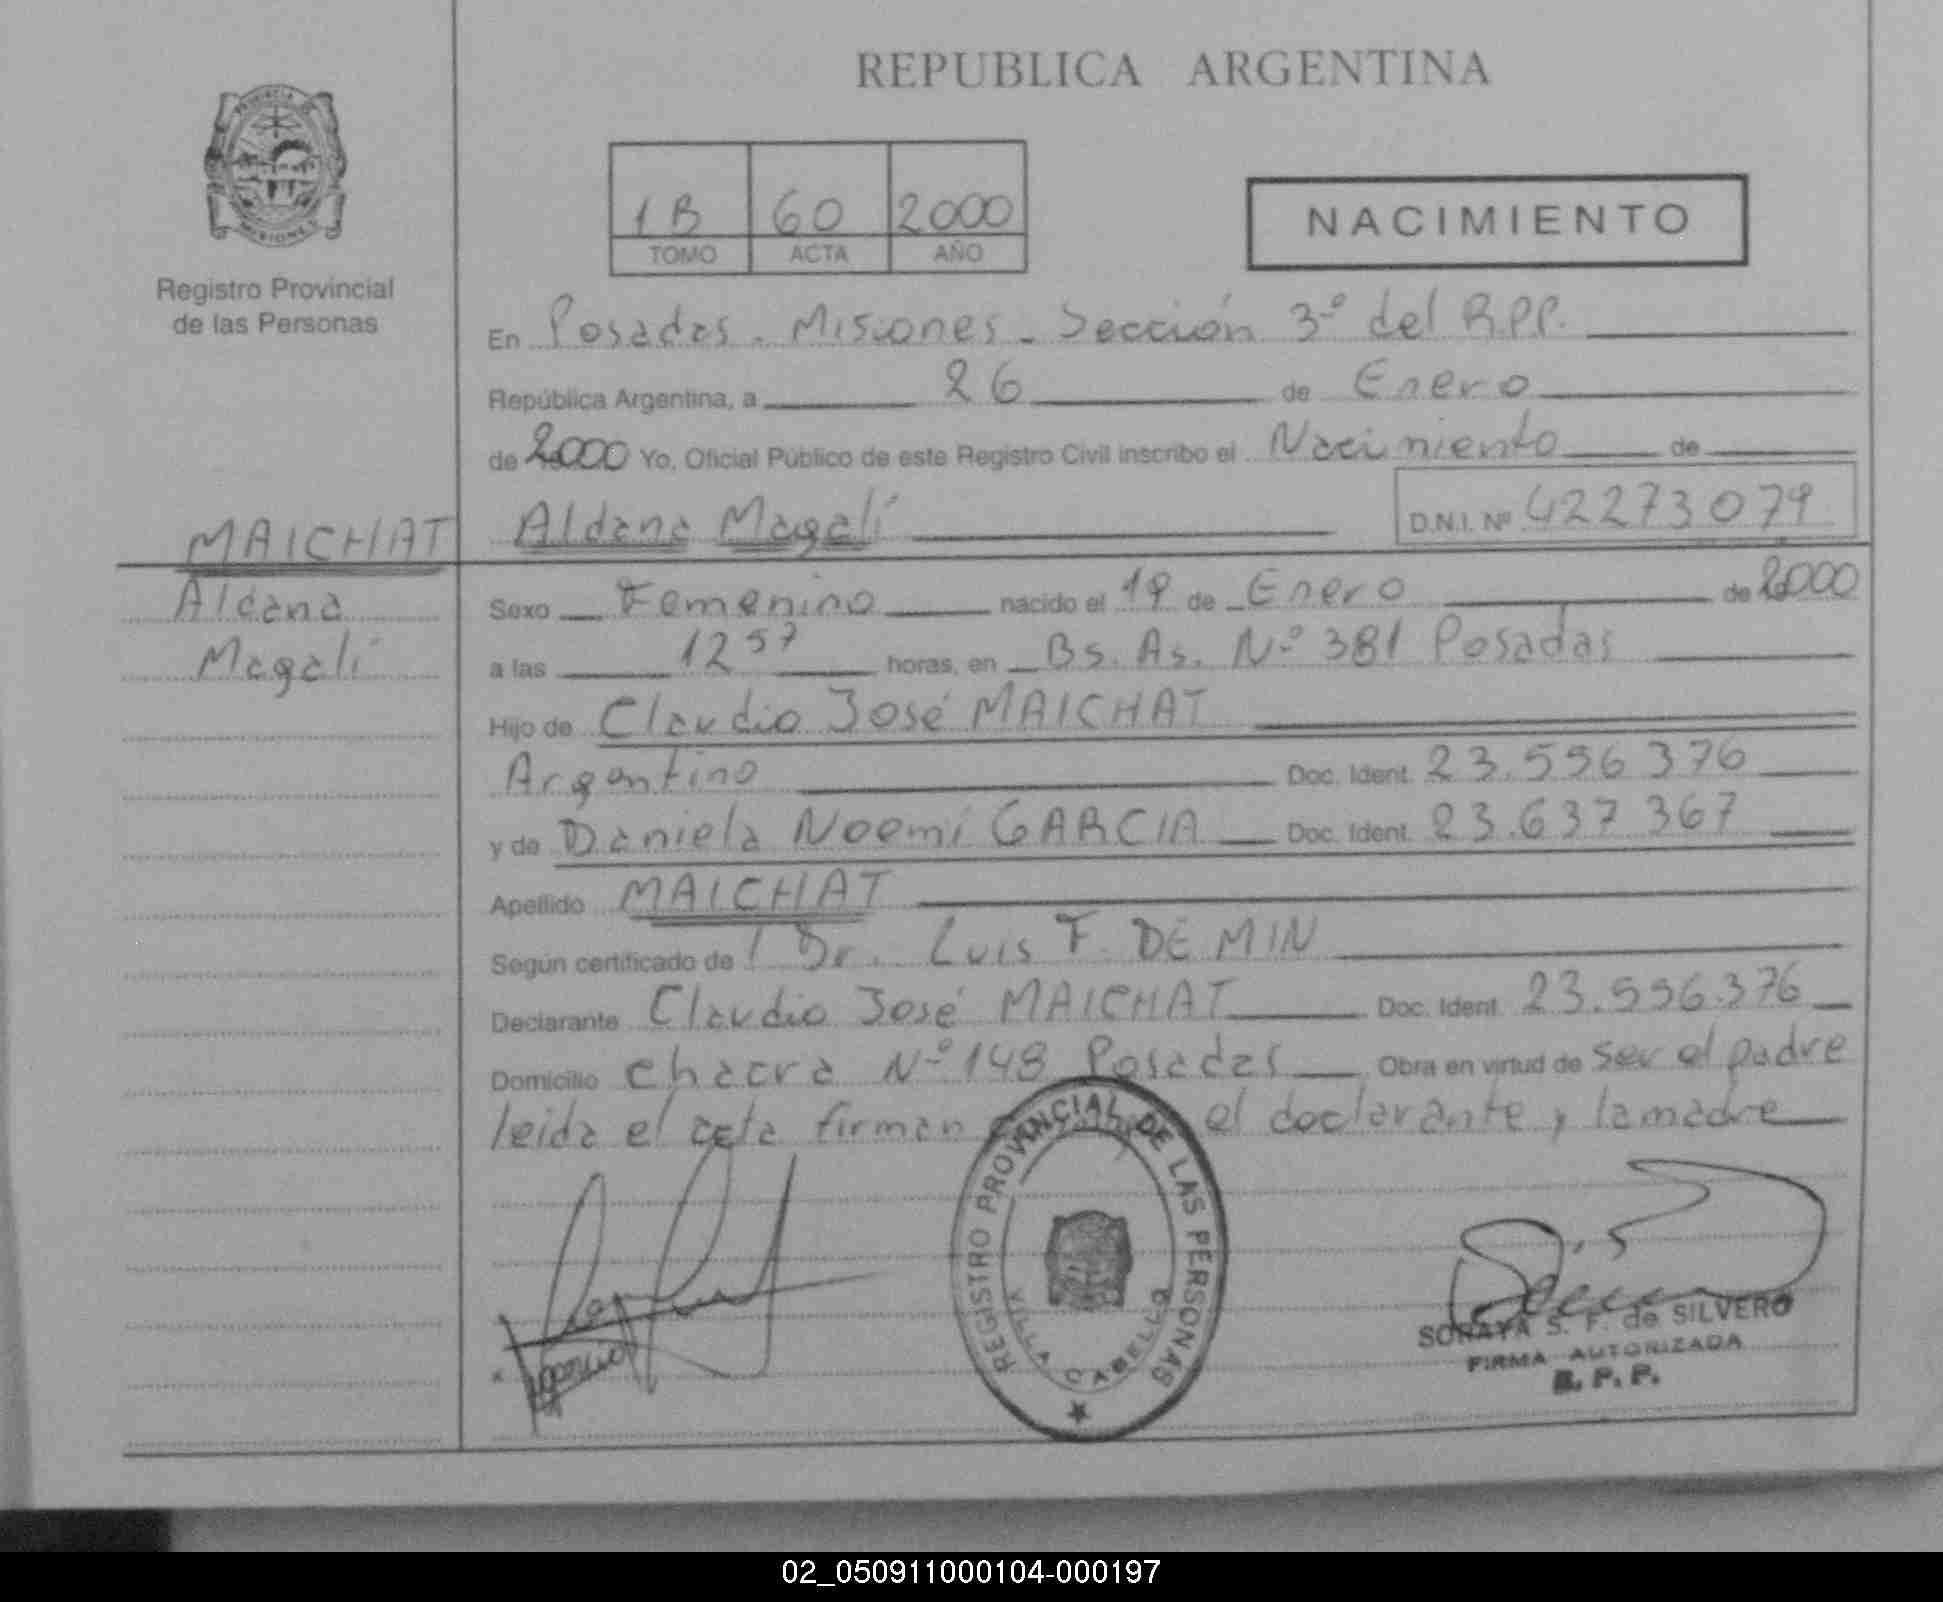 REPUBLICA ARGENTINA
PROVINCIA DE
MISIONES
Registro Provincial
de las Personas
1B 60 2000
TOMO ACTA AÑO
NACIMIENTO
En Posadas. Misiones. Sección 3º del R.P.P.
República Argentina, a 26 de Enero
de 2000 Yo, Oficial Público de este Registro Civil inscribo el Nacimiento de
MAICHAT Aldana Magalí D.N.I. Nº 42273079
Aldana
Magalí
Sexo Femenino nacido el 19 de Enero de 2000
a las 12 57 horas, en Bs. As. Nº 381 Posadas
Hijo de Claudio José MAICHAT
Argentino Doc. Ident. 23.556376
y de Daniela Noemí GARCIA Doc. Ident. 23.637367
Apellido MAICHAT
Según certificado de Dr. Luis F. DE MIN
Declarante Claudio José MAICHAT Doc. Ident. 23.556.376
Domicilio chacra Nº 148 Posadas Obra en virtud de ser el padre
leida el acta firman el declarante y la madre
REGISTRO PROVINCIAL DE LAS PERSONAS
VILLA CABELLO
SORAYA S. F. de SILVERO
FIRMA AUTORIZADA
R. P. P.
02_050911000104-000197